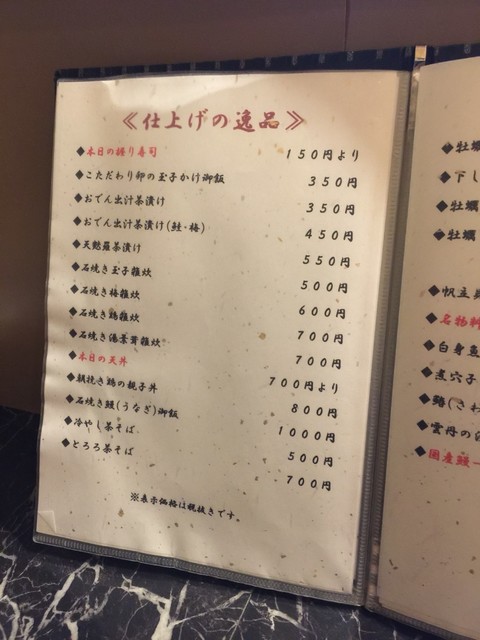 ≪仕上げの逸品≫
◆本日の握り寿司 150円より
◆こだわり卵の玉子かけ御飯 350円
◆おでん出汁茶漬け 350円
◆おでん出汁茶漬け(鮭・梅) 450円
◆天麩羅茶漬け 550円
◆石焼き玉子雑炊 500円
◆石焼き梅雑炊 600円
◆石焼き鶏雑炊 700円
◆石焼き湯葉茸雑炊 700円
◆本日の天丼 700円より
◆朝挽き鶏の親子丼 800円
◆石焼き鰻(うなぎ)御飯 1000円
◆冷やし茶そば 500円
◆とろろ茶そば 700円
※表示価格は税抜きです。
◆牡蠣
◆下し
◆牡蠣
◆牡蠣
◆帆立
◆名物料
◆白身魚
◆煮穴子
◆鰆(さわ
◆雲丹の
◆国産鰻一